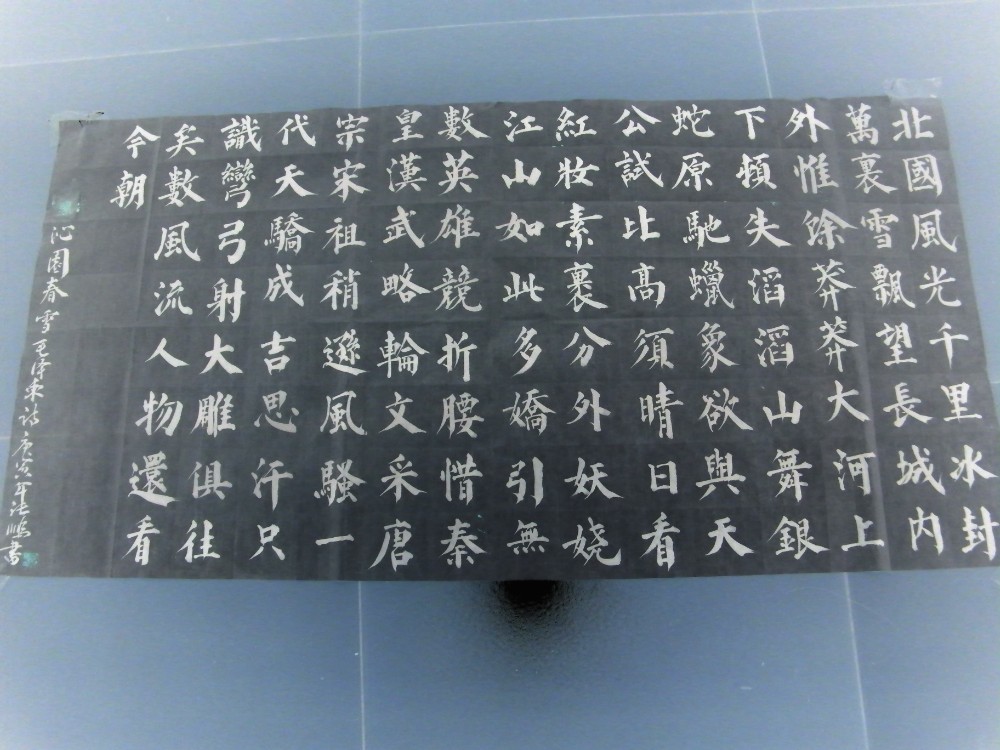 北國風光千里水封
萬裏雪飄望長城内
外惟餘莽莽大河上
下頓失滔滔山舞銀
蛇原馳蠟象欲與天
公試比高須晴日看
紅妝素裏分外妖娆
江山如此多嬌引無
數英雄競折腰惜秦
皇漢武略輪文采唐
宗宋祖稍遜風騷一
代天驕成吉思汗只
識彎弓射大雕俱往
矣數風流人物還看
今朝
沁園春雪毛澤東詩庚寅年張鵬書